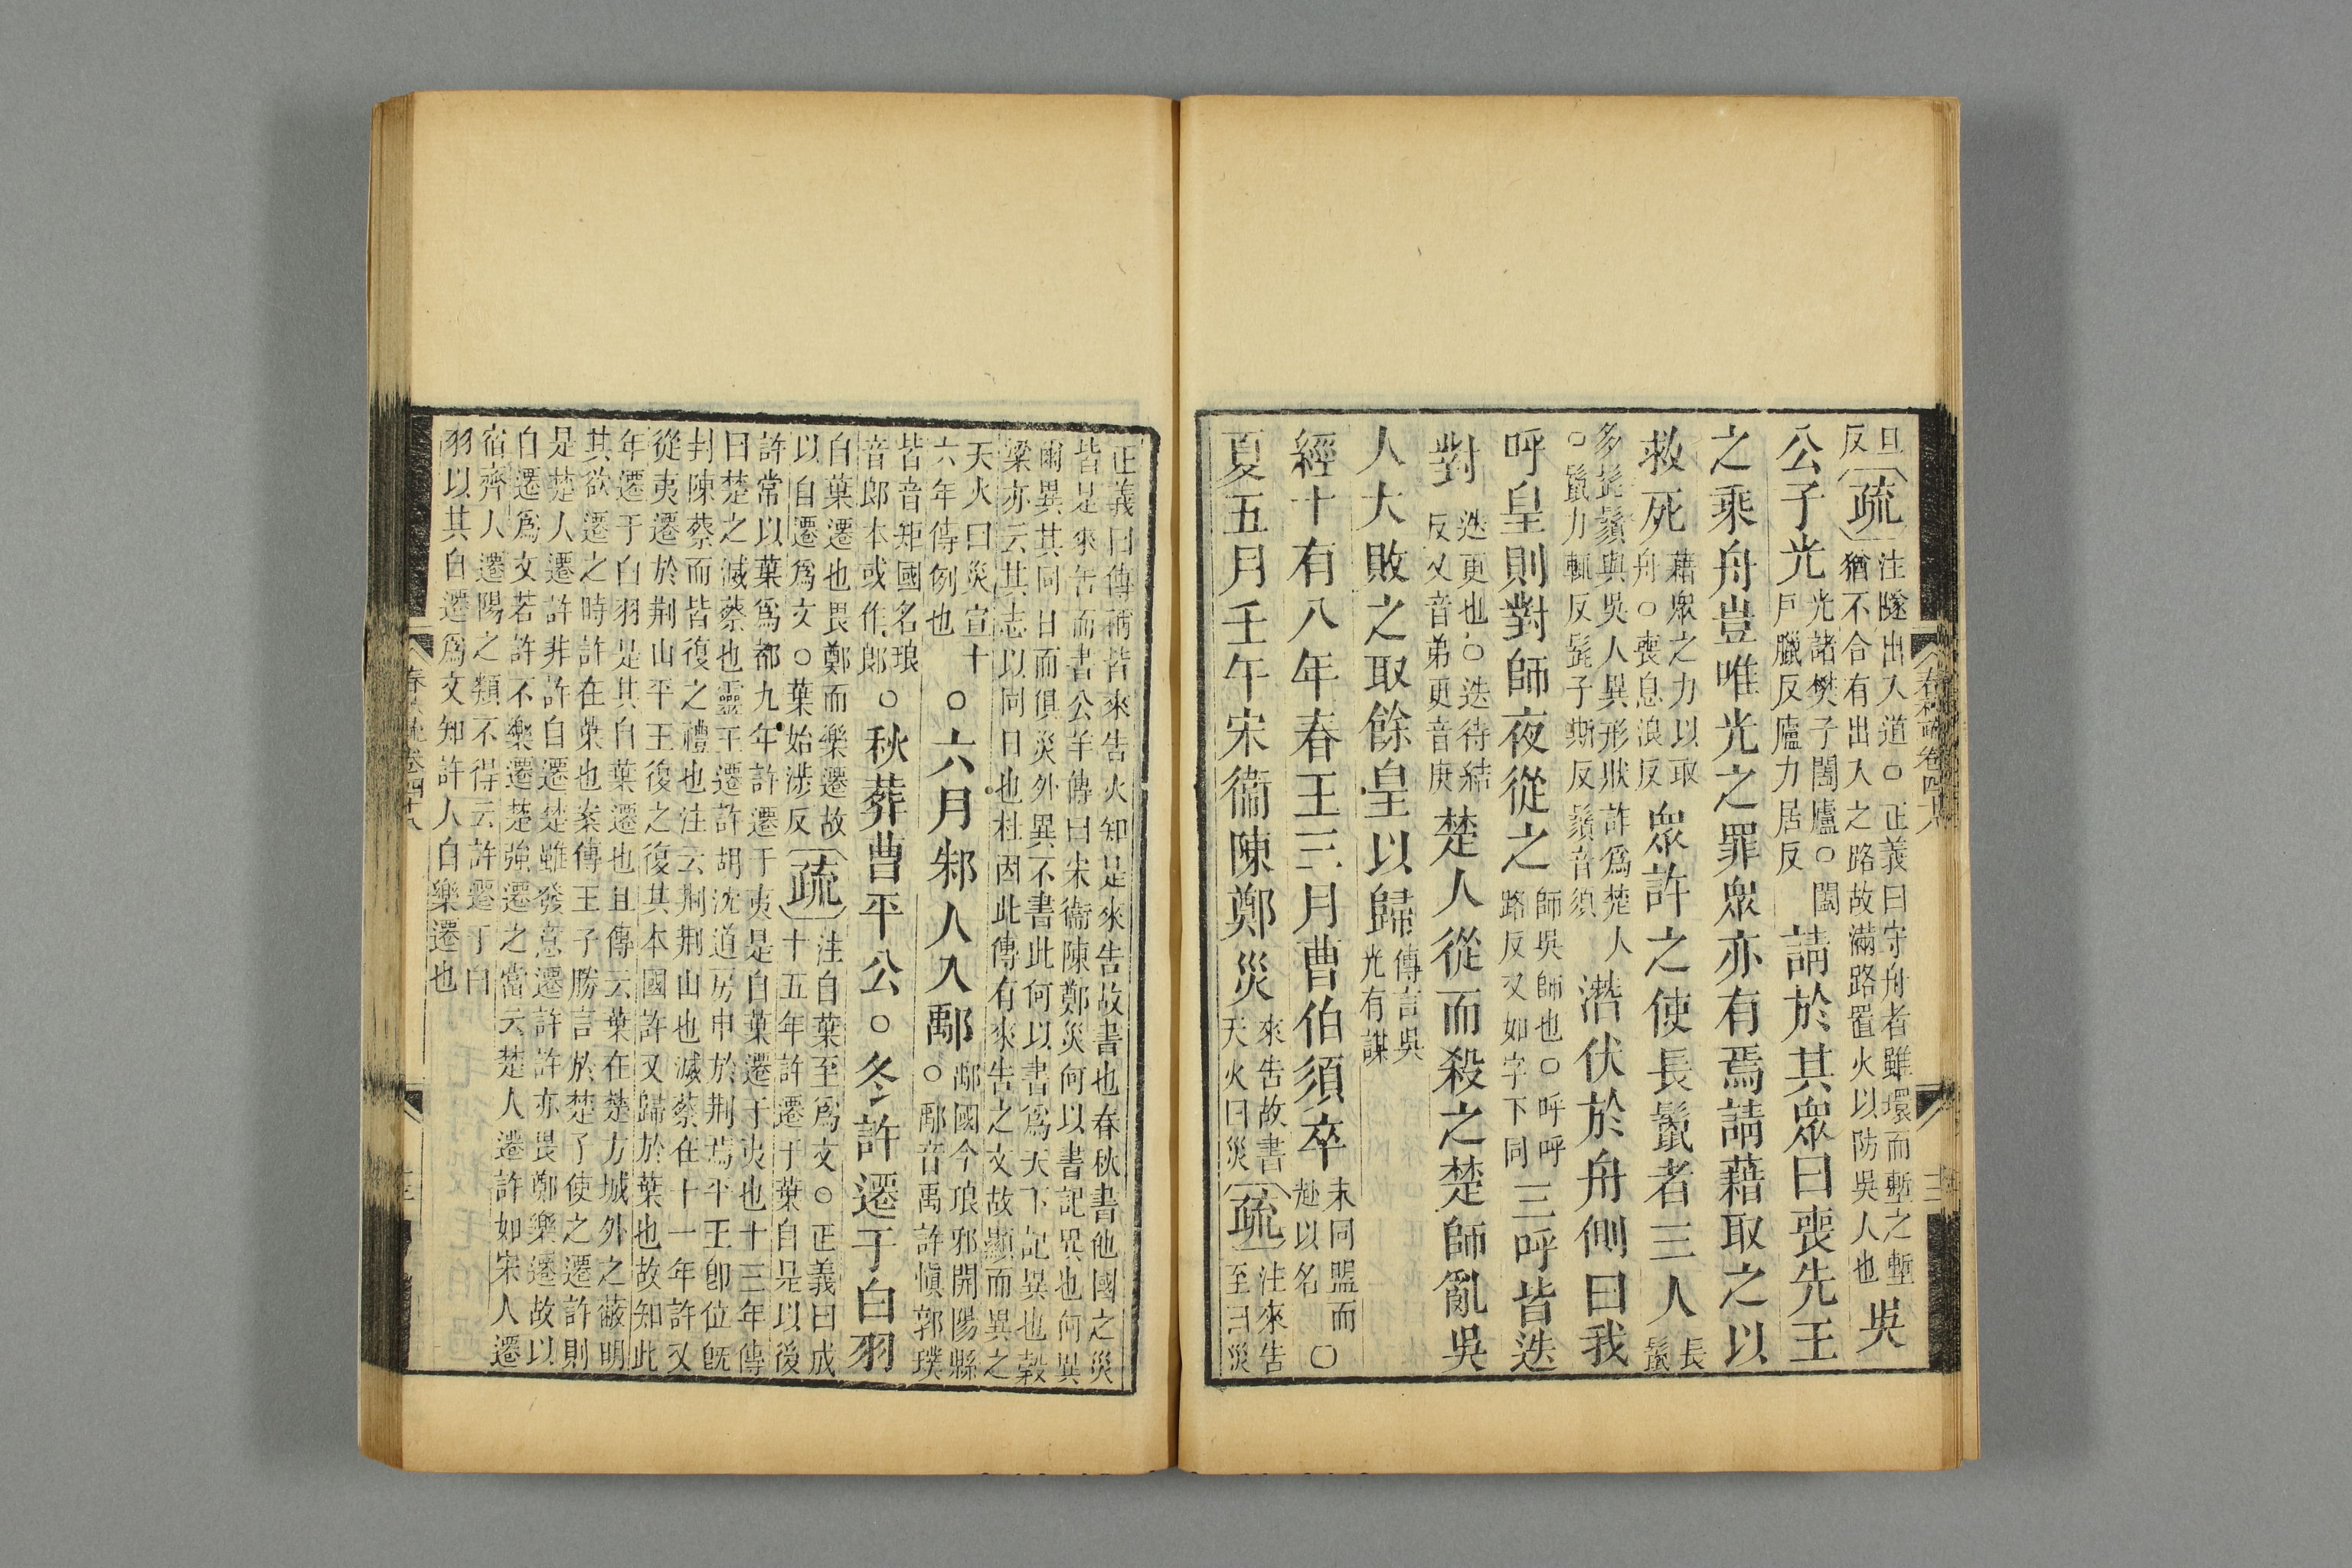 旦反疏注隧出入道○正義曰守舟者雖環而塹之塹猶不合有出入之路故滿路置火以防吳人也吳
公子光光諸樊子闔廬○闔戶臘反廬力居反請於其眾曰喪先王
之乘舟豈唯光之罪眾亦有焉請藉取之以
救死藉眾之力以取舟○喪息浪反眾許之使長鬣者三人長鬣
多髭鬚與吳人異形狀詐爲楚人○鬣力輒反髭子斯反鬚音須潛伏於舟側曰我
呼皇則對師夜從之師吳師也○呼呼路反又如字下同三呼皆迭
對迭更也○迭待結反又音弟更音庚楚人從而殺之楚師亂吳
人大敗之取餘皇以歸傳言吳光有謀
經十有八年春王三月曹伯須卒未同盟而赴以名○
夏五月壬午宋衞陳鄭災來告故書天火曰災疏注來告至曰災
正義曰傳稱皆來告火知是來告故書也春秋書他國之災
皆是來告而書公羊傳曰宋衞陳鄭災何以書記異也何異
爾異其同日而俱災外異不書此何以書爲天下記異也穀
梁亦云其志以同日也杜因此傳有來告之文故顯而異之
天火曰災宣十六年傳例也○六月邾人入鄅鄅國今琅邪開陽縣○鄅音禹許慎郭璞
皆音矩國名琅音郎本或作郎○秋葬曹平公○冬許遷于白羽
自葉遷也畏鄭而樂遷故以自遷爲文○葉始涉反疏注自葉至爲文○正義曰成十五年許遷于葉自是以後
許常以葉爲都九年許遷于夷是自葉遷于夷也十三年傳
曰楚之滅蔡也靈王遷許胡沈道房申於荆焉平王卽位旣
封陳蔡而皆復之禮也注云荆荆山也滅蔡在十一年許又
從夷遷於荆山平王復之復其本國許又歸於葉也故知此
年遷于白羽是其自葉遷也且傳云葉在楚方城外之蔽明
其欲遷之時許在葉也案傳王子勝言於楚子使之遷許則
是楚人遷許非許自遷楚雖發意遷許許亦畏鄭樂遷故以
自遷爲文若許不樂遷楚強遷之當云楚人遷許如宋人遷
宿齊人遷陽之類不得云許遷丁白
羽以其自遷爲文知許人自樂遷也